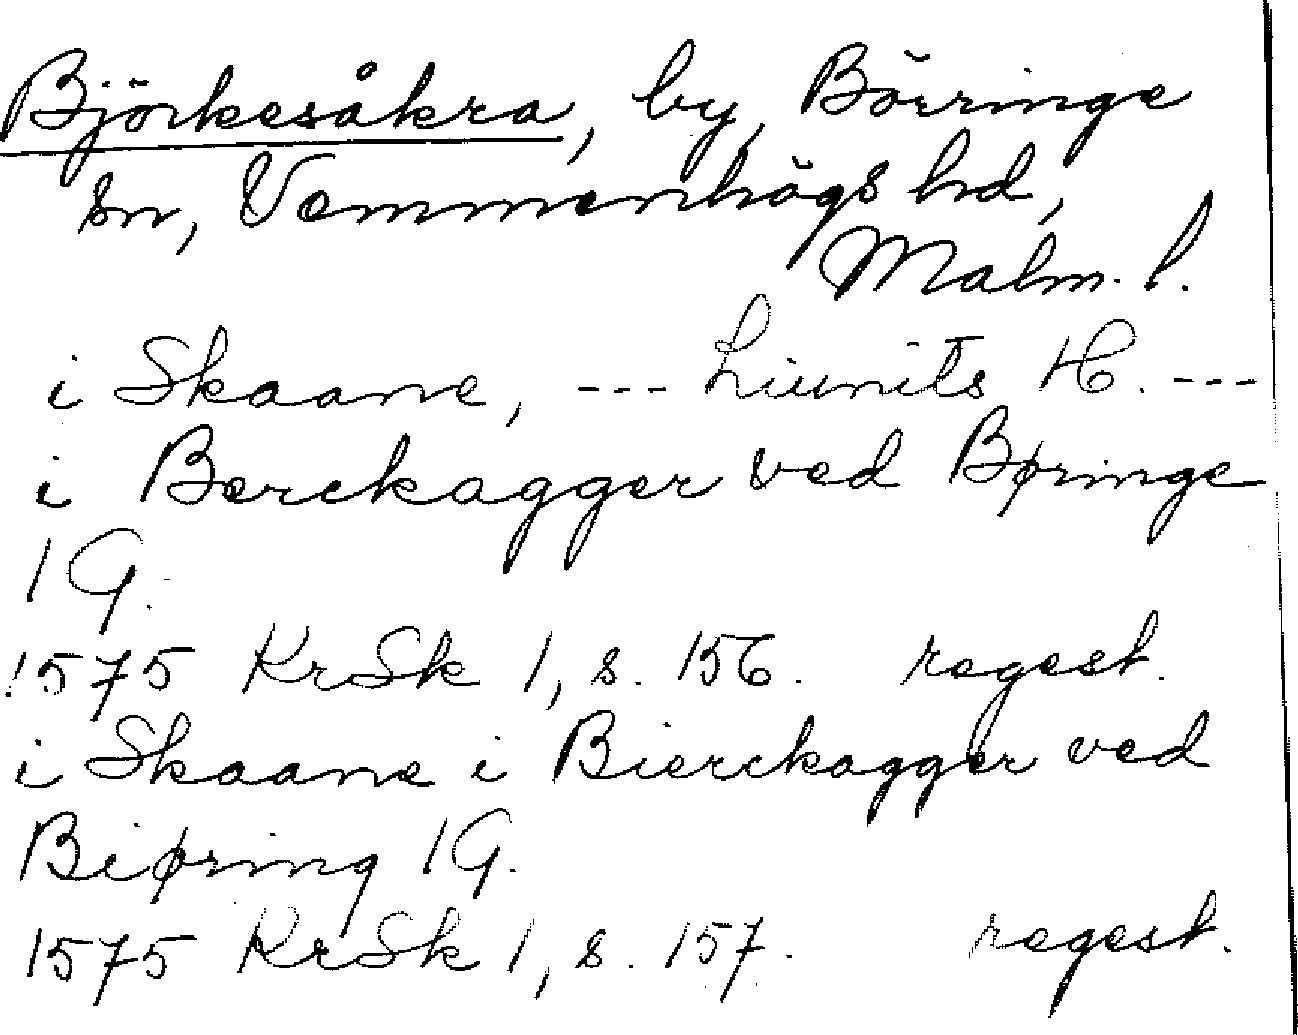 Björkesåkra, by, Börringe
sn, Vemmenhögs hd,
Malm. l.
i Skaane, --- Liunits H. ---
i Berckagger ved Børinge
1 G.
1575 KrSk 1, s. 156. regest.
i Skaane i Bierckagger ved
Biøring 1 G.
1575 KrSk 1, s. 157. regest.